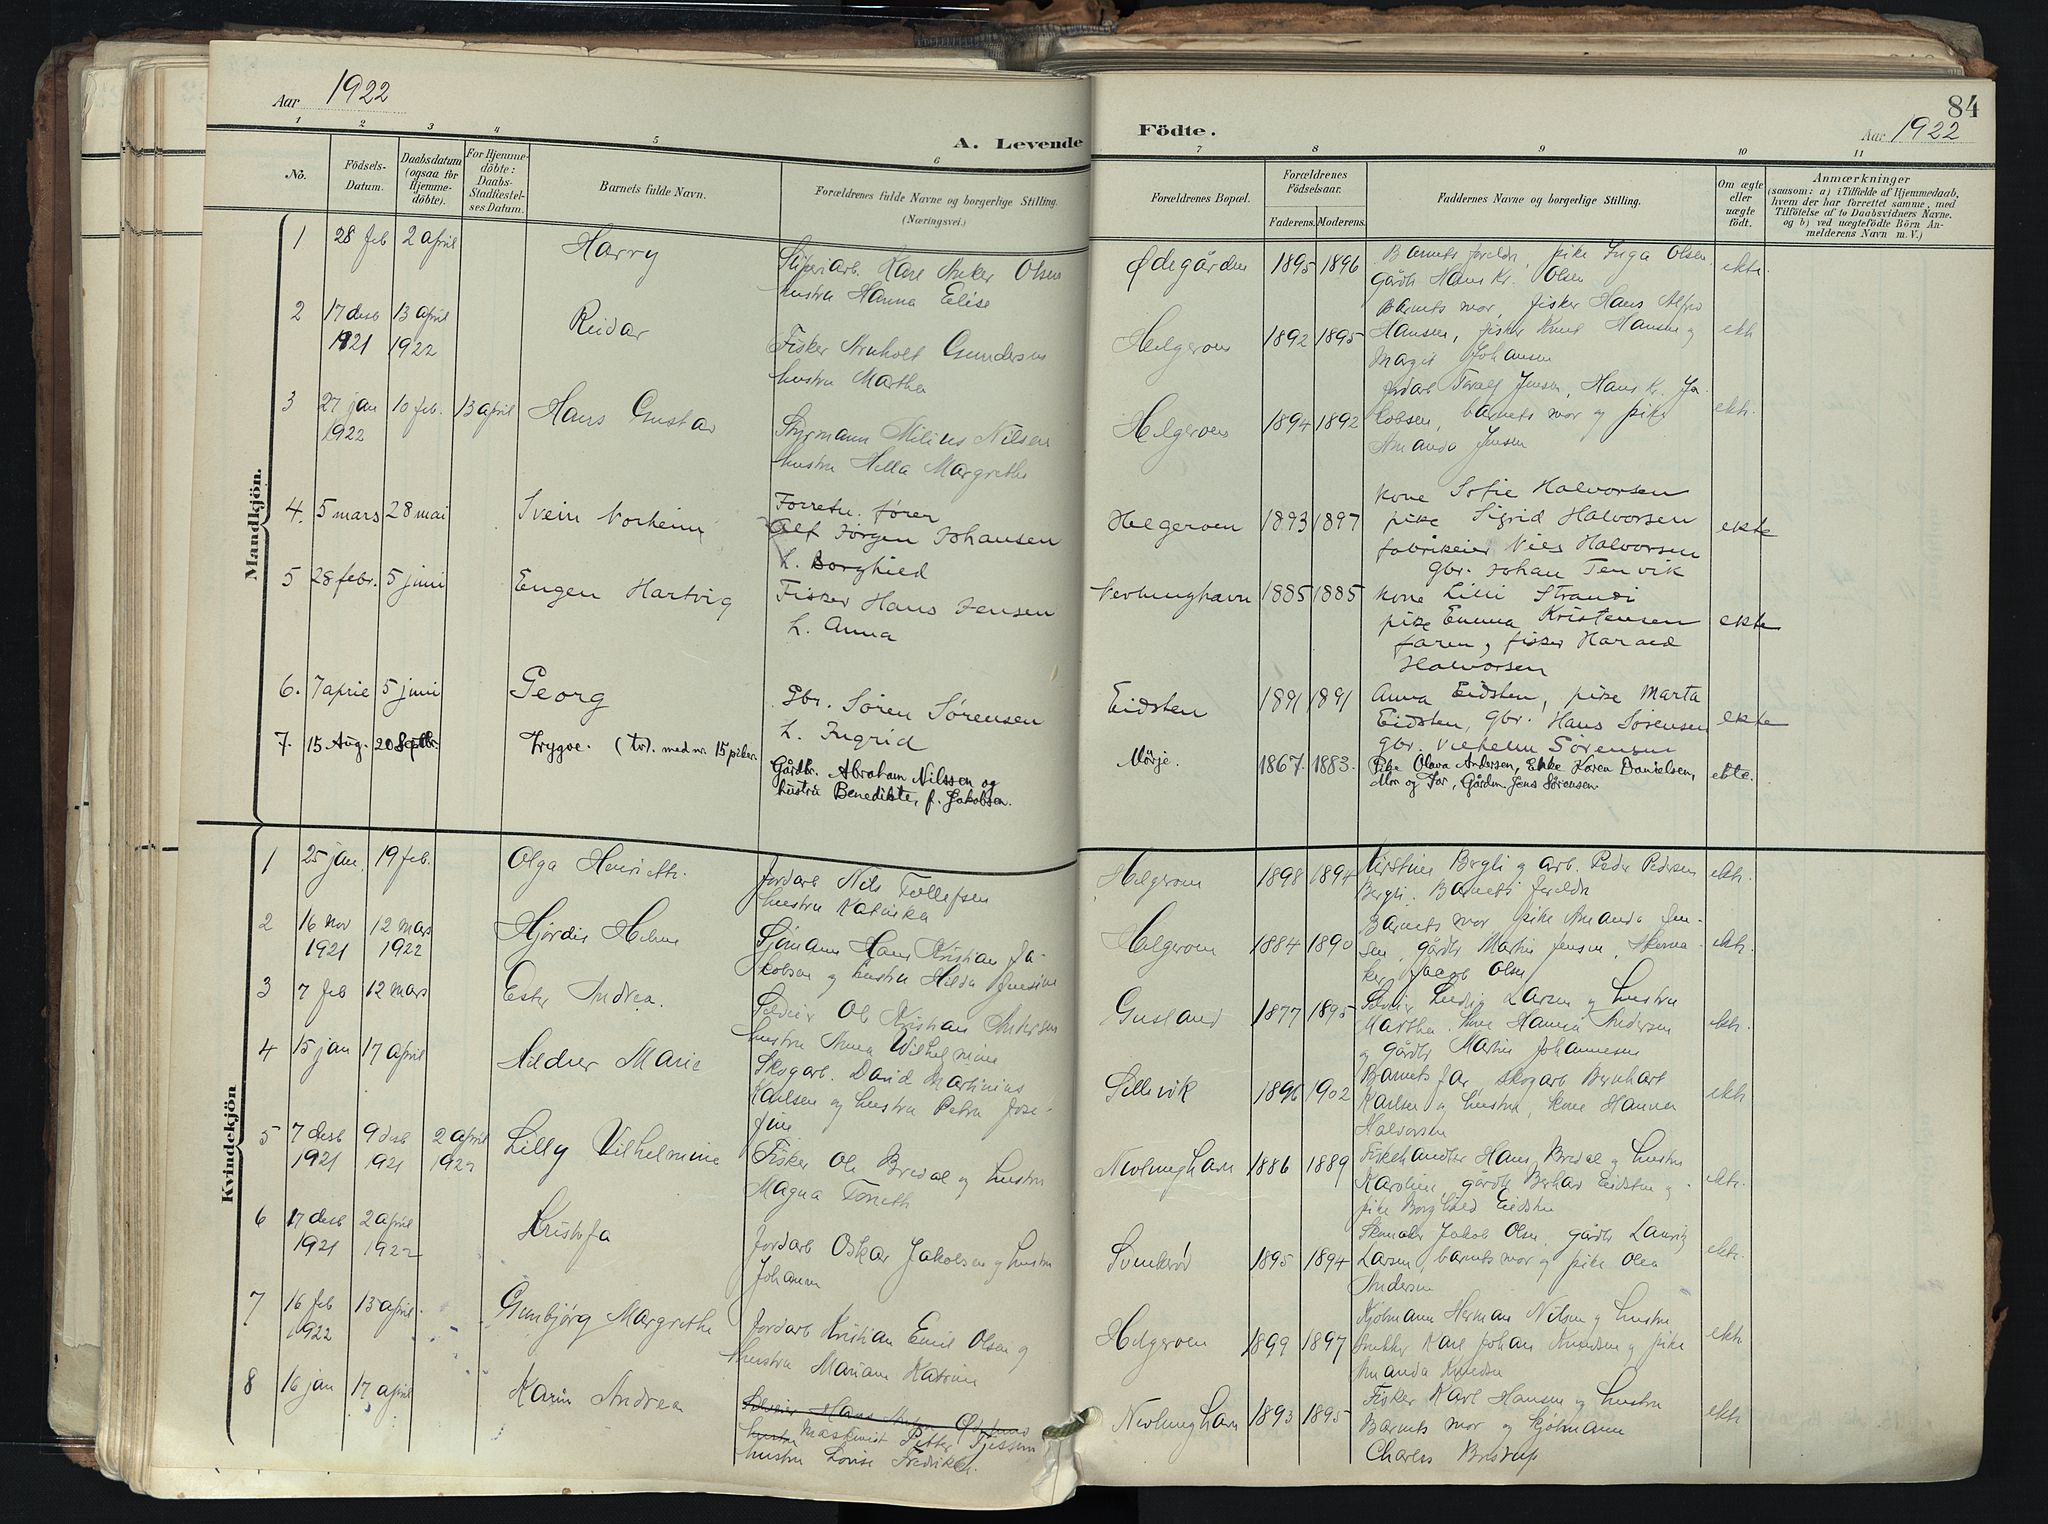 Aar 1922
A. Levende Födte.
84
Aar 1922
1 2 3 4 5 6 7 8 9 10 11
No.
Födsels-Datum.
Daabsdatum (ogsaa for Hjemme-döbte).
For Hjemme-döbte: Daabs-Stadfæstel-ses Datum.
Barnets fulde Navn.
Forældrenes fulde Navne og borgerlige Stilling.
(Næringsvei.)
Forældrenes Bopæl.
Forældrenes Födselsaar.
Faderens. Moderens.
Faddernes Navne og borgerlige Stilling.
Om ægte eller uægte födt.
Anmærkninger
(saasom: a) i Tilfælde af Hjemmedaab, hvem der har forrettet samme, med Tilföielse af to Daabsvidners Navne. og b) ved uægtefödte Börn An-melderens Navn m. V.)
Mandkjön.
1 28 feb 2 april Harry
Karl Anker Olsen
hustru Hanna Elise
Ødegården 1895 1896
Barnets foreldre, pike Inga Olsen
Gårdb Hans Kr. Olsen
ekte.
2 17 desb 1921 13 april 1922 Reidar
Fisker Arnholt Gundersen
hustru Martha
Helgeroen 1892 1895
Barnets mor, fisker Hans Alfred
Hansen, fisker Knut Hansen og
Margit Johansen
ekte
3 27 jan 1922 10 feb. 13 april Hans Gustav
Styrmann Milius Nilsen
hustru Hella Margrethe
Helgeroen 1894 1892
Jordarb Toralf Jensen, Hans Kr. Ja-
kobsen, barnets mor og pike
Amanda Jensen
ekte.
4. 5 mars 28 mai Svein Norheim
Forretn. fører
Alf Jørgen Johansen
h. Borghild
Helgeroen 1893 1897
kone Sofie Halvorsen
pike Sigrid Halvorsen
fabrikeier Nils Halvorsen
gbr. Johan Tenvik
ekte
5 28 febr. 5 juni Eugen Hartvig
Fisker Hans Jensen
h. Anna
Nevlunghavn 1885 1885
kone Lilli Strandi
pike Emma Kristensen
faren, fisker Harald
Halvorsen
ekte
6. 7 april 5 juni Georg
Gbr. Søren Sørensen
h. Ingrid
Eidsten 1891 1891
Anna Eidsten, pike Marta
Eidsten, gbr. Hans Sørensen
gbr. Vilhelm Sørensen
ekte
7. 15 Aug. 20 Septbr. Trygve. (tv). med nr. 15 piker.
Gårdbr. Abraham Nilssen og
hustru Benedikte, f. Jakobsen.
Mörje. 1867. 1883.
Pike Olava Andersen, Enke Karen Danielsen,
Mor og Far, Gårdm. Jens Sørensen.
ekte.
Kvindekjön
1 25 jan 19 feb. Olga Henriette.
Jordarb Nils Tollefsen
hustru Katinka
Helgeroen 1898 1894
Kirstine Bergli og arb. Peder Pedersen
Bergli. Barnets foreldre
ekte.
2 16 nov 1921 12 mars 1922 Hjørdis Helene
Sjömann Hans Kristian Ja-
kobsen og hustru Hilda Josefine
Helgeroen 1884 1890
Barnets mor pike Amanda Jen-
sen, gårdb Martin Jensen, Skoma-
ker Jacob Olsen
ekte.
3 7 feb 12 mars Ester Andrea.
Selveier Ole Kristian Andersen
hustru Anna Wilhelmine
Gusland 1877 1895
Selveier Ludvig Larsen og hustru
Martha. kone Hanna Andersen
og gårdb Martin Johannesen
ekte.
4 15 jan 17 april Marie
Skogarb. David Martinius
Karlsen og hustru Petra Jose-
fine
Sillevik 1896 1902
Barnets far, skogarb Bernhart
Karlsen og hustru, kone Hanna
Halvorsen
ekte
5 7 desb 1921 9 desb 1921 2 april 1922 Lilly Vilhelmine
Fisker Ole Bredal og hustru
Magna Toneth
Nevlunghavn 1886 1889
Fiskehandler Hans Bredal og hustru
Karoline gårdb Eidsten og
pike Borghild Eidsten
ekte.
6 17 desb 1921 2 april 1922 Kristofa
Jordarb Oskar Jakobsen og hustru
Johanne
1895 1894
Skomaker Jakob Olsen, gårdb Lauritz
Larsen, barnets mor og pike Olea
Andersen
ekte.
7 16 feb 1922 13 april. Gunbjörg Margrethe
Jordarb Kristian Emil Olsen og
hustru Mariam Katrine
Helgeroen 1899 1897
Herman Nilsen og hustru
Snekker Karl Johan Knudsen og pike
Amanda Knudsen
ekte
8 16 jan 17 april Karin Andrea
Selveier Hans
hustru Maskinist Petter Tjessum
hustru Lovise Fredrikke.
Nevlunghavn 1893 1895
Fisker Karl Hansen og hustru
Barnets mor og Sjömann
Charles Bostrup
ekte